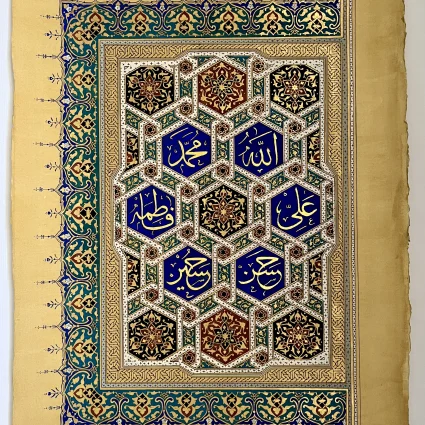 الله محمد
علي فاطمة
حسن حسين